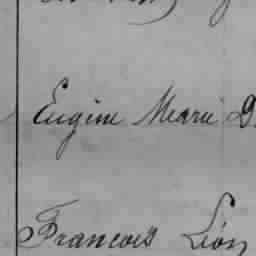 Eugène Marie D
François Léon